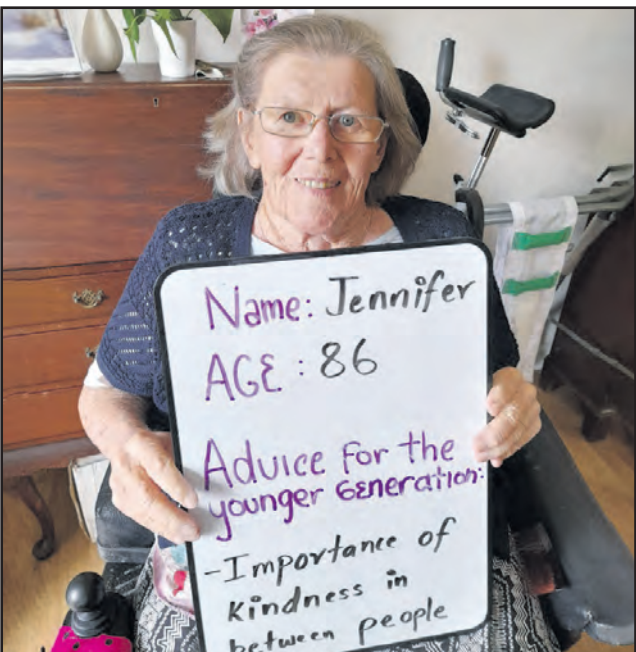 Name: Jennifer
AGE : 86
Advice for the
younger Generation:
-Importance of
Kindness in
between people